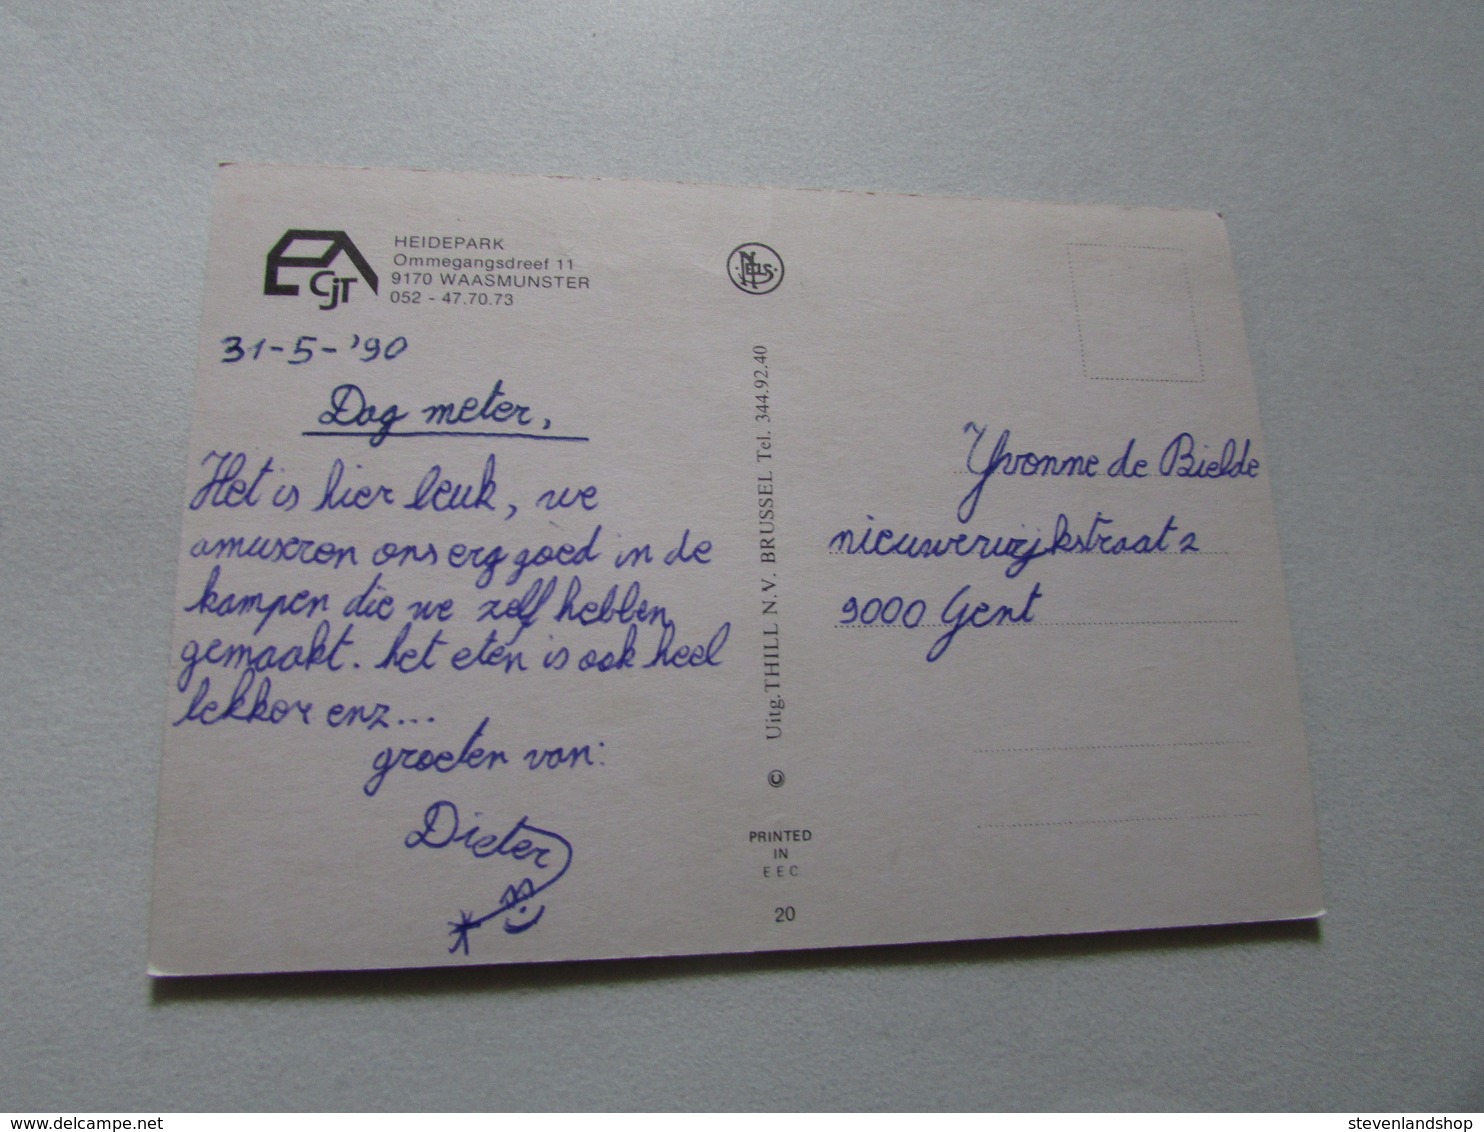 CJT
HEIDEPARK
Ommegangsdreef 11
9170 WAASMUNSTER
052 - 47.70.73
31-5-'90
Dag meter,
Het is hier leuk, we
amuseren ons erg goed in de
kampen die we zelf hebben
gemaakt. het eten is ook heel
lekker enz...
groeten van:
Dieter
NELS
Uitg. THILL N.V. BRUSSEL Tel. 344.92.40
©
PRINTED
IN
EEC
20
Yvonne de Bielde
nieuwerwijkstraat 2
9000 Gent
delcampe.net
stevenlandshop